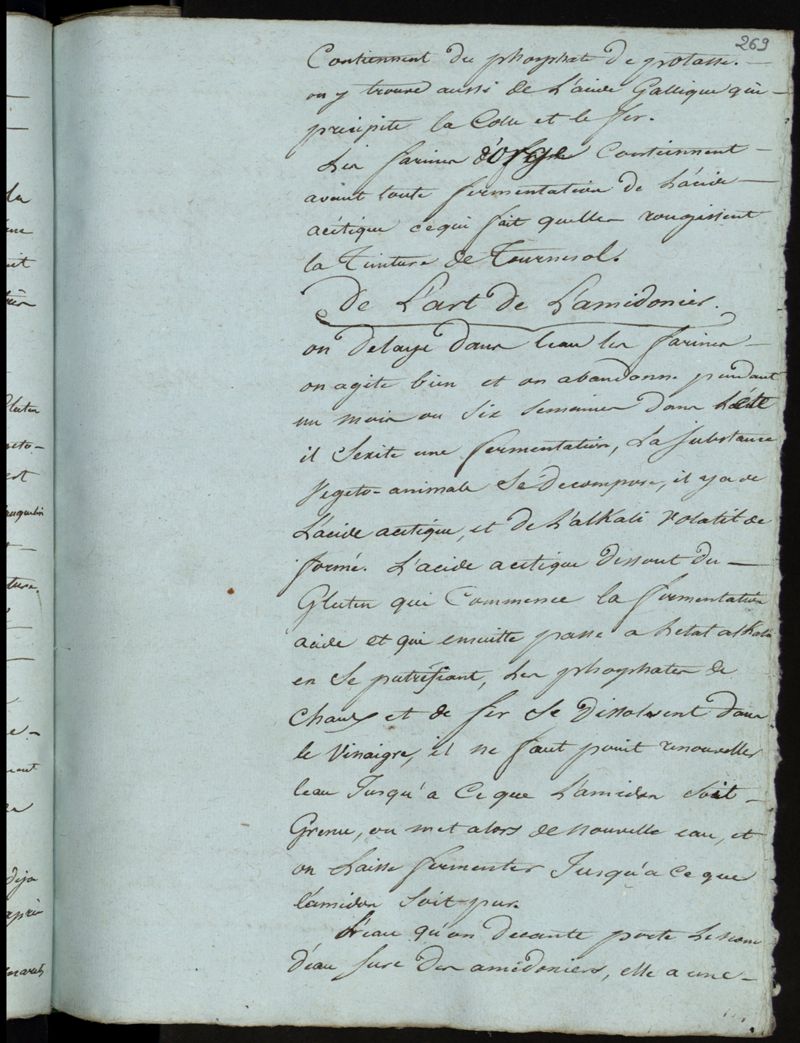 269
Contiennent du phosphate de potasse. —
on y trouve aussi de L'acide Gallique qui —
precipite la Colle et le fer.
Les farines d'orge Contiennent —
avant toute fermentation de L'acide —
acétique cequi fait quelles rougissent
la Teinture de Tournesol.
De L'art de L'amidonier.
on delaye dans leau les farines —
on agite bien et on abandonne pendant
un mois ou Six Semaines dans L'été
il Sexite une fermentation, La Substance
Vegeto-animale Se decompose, il y a de
L'acide acetique, et de L'alkali Volatil de
formé. L'acide acetique dissout du —
Gluten qui Commence la fermentation
acide et qui ensuitte passe a letat alkali
en Se putrefiant, Les phosphates de
Chaux et de fer Se dissolvent dans
le Vinaigre, il ne faut point renouveller
leau Jusqu'a Ce que L'amidon Soit —
Grenu, on met alors de nouvelle eau, et
on Laisse fermenter Jusqu'a Ce que
L'amidon Soit pur.
L'eau qu'on decante porte Le nom
d'eau Sure Des amedoniers, elle a une —